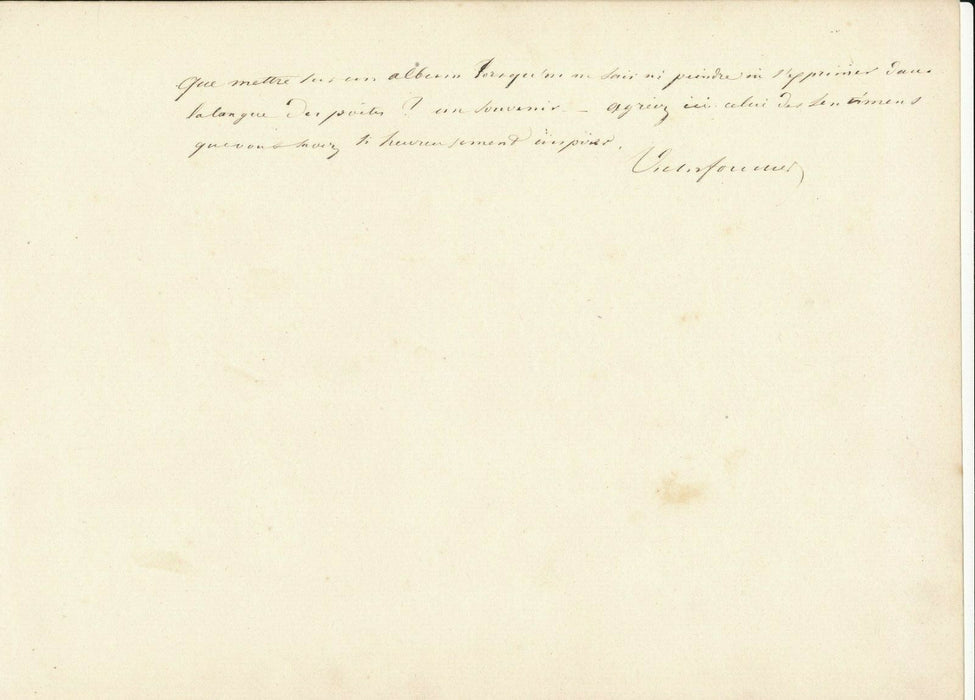 Que mettre sur un album lorsqu'on ne sait ni peindre ni s'exprimer dans
la langue des poëtes ? un souvenir — agréez ici celui des sentimens
que vous savez si heureusement inspirer.
Victor